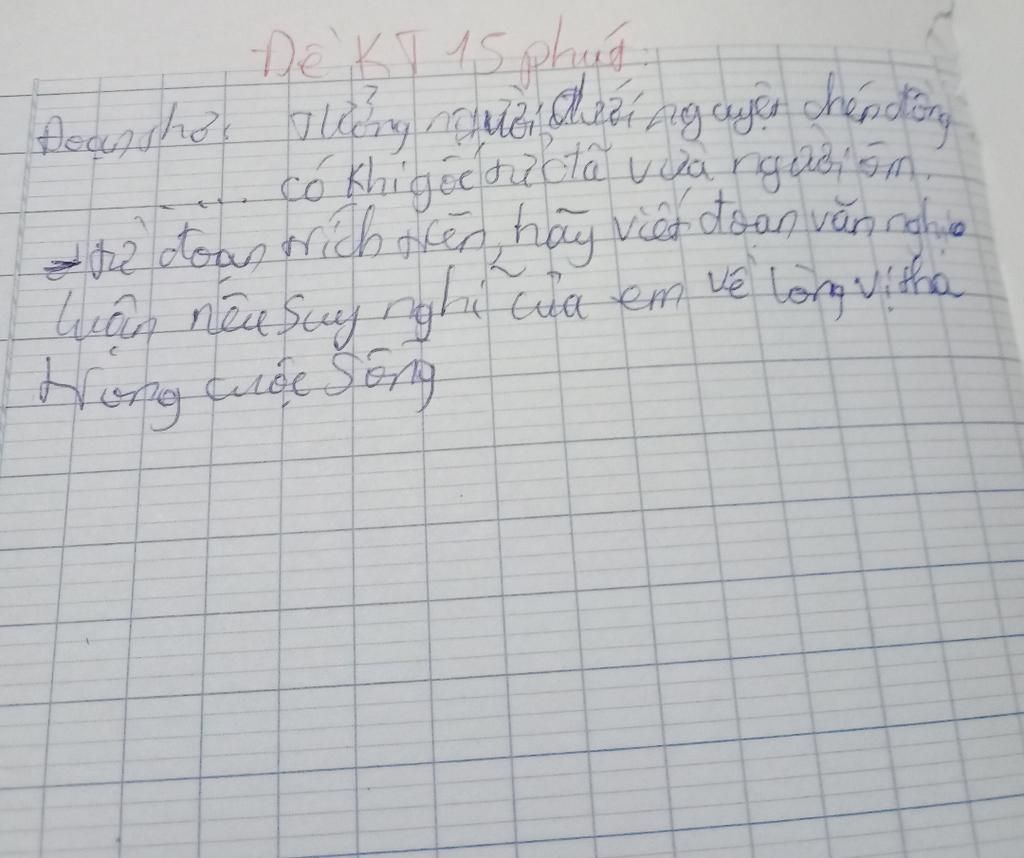 Đề KT 15 phút:
Đoạn thơ: Tưởng người dưới nguyệt chén đồng
..... có khi gốc tử đã vừa người ôm.
- từ đoạn trích trên, hãy viết đoạn văn nghị
luận nêu suy nghĩ của em về lòng vị tha
trong cuộc sống